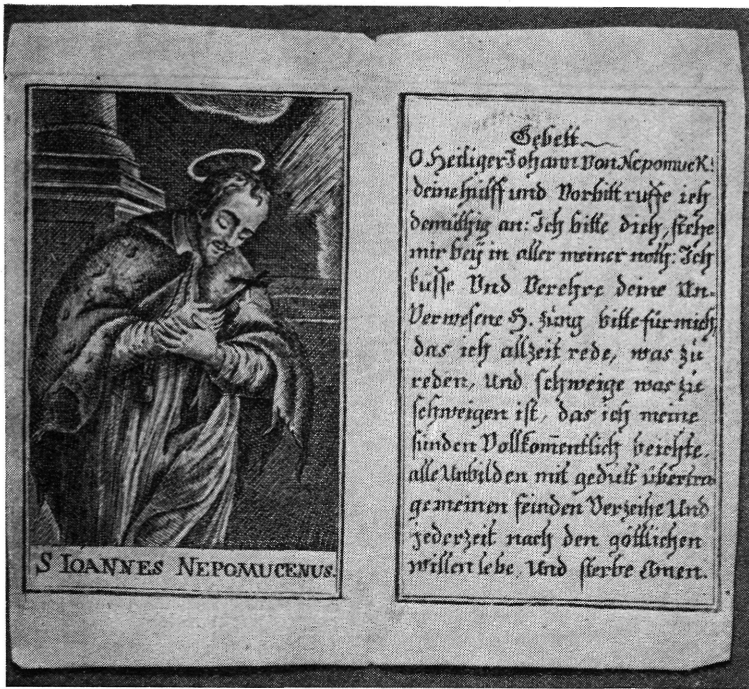 S IOANNES NEPOMUCENUS.
Gebett
O Heiliger Johann von Nepomuck:
deine hülff und Vorbitt ruffe ich
demüthig an: Ich bitte dich, stehe
mir beÿ in aller meiner noth: Ich
küsse Und Verehre deine Un-
Verwesene H. züng bitte für mich,
das ich allzeit rede, was zü
reden, Und schweige was zü
schweigen ist, das ich meine
sünden Vollkom̄entlich beichte,
alle Unbilden mit gedult übertra-
ge meinen feinden Verzeihe Und
jederzeit nach den göttlichen
willen lebe, Und sterbe Amen.